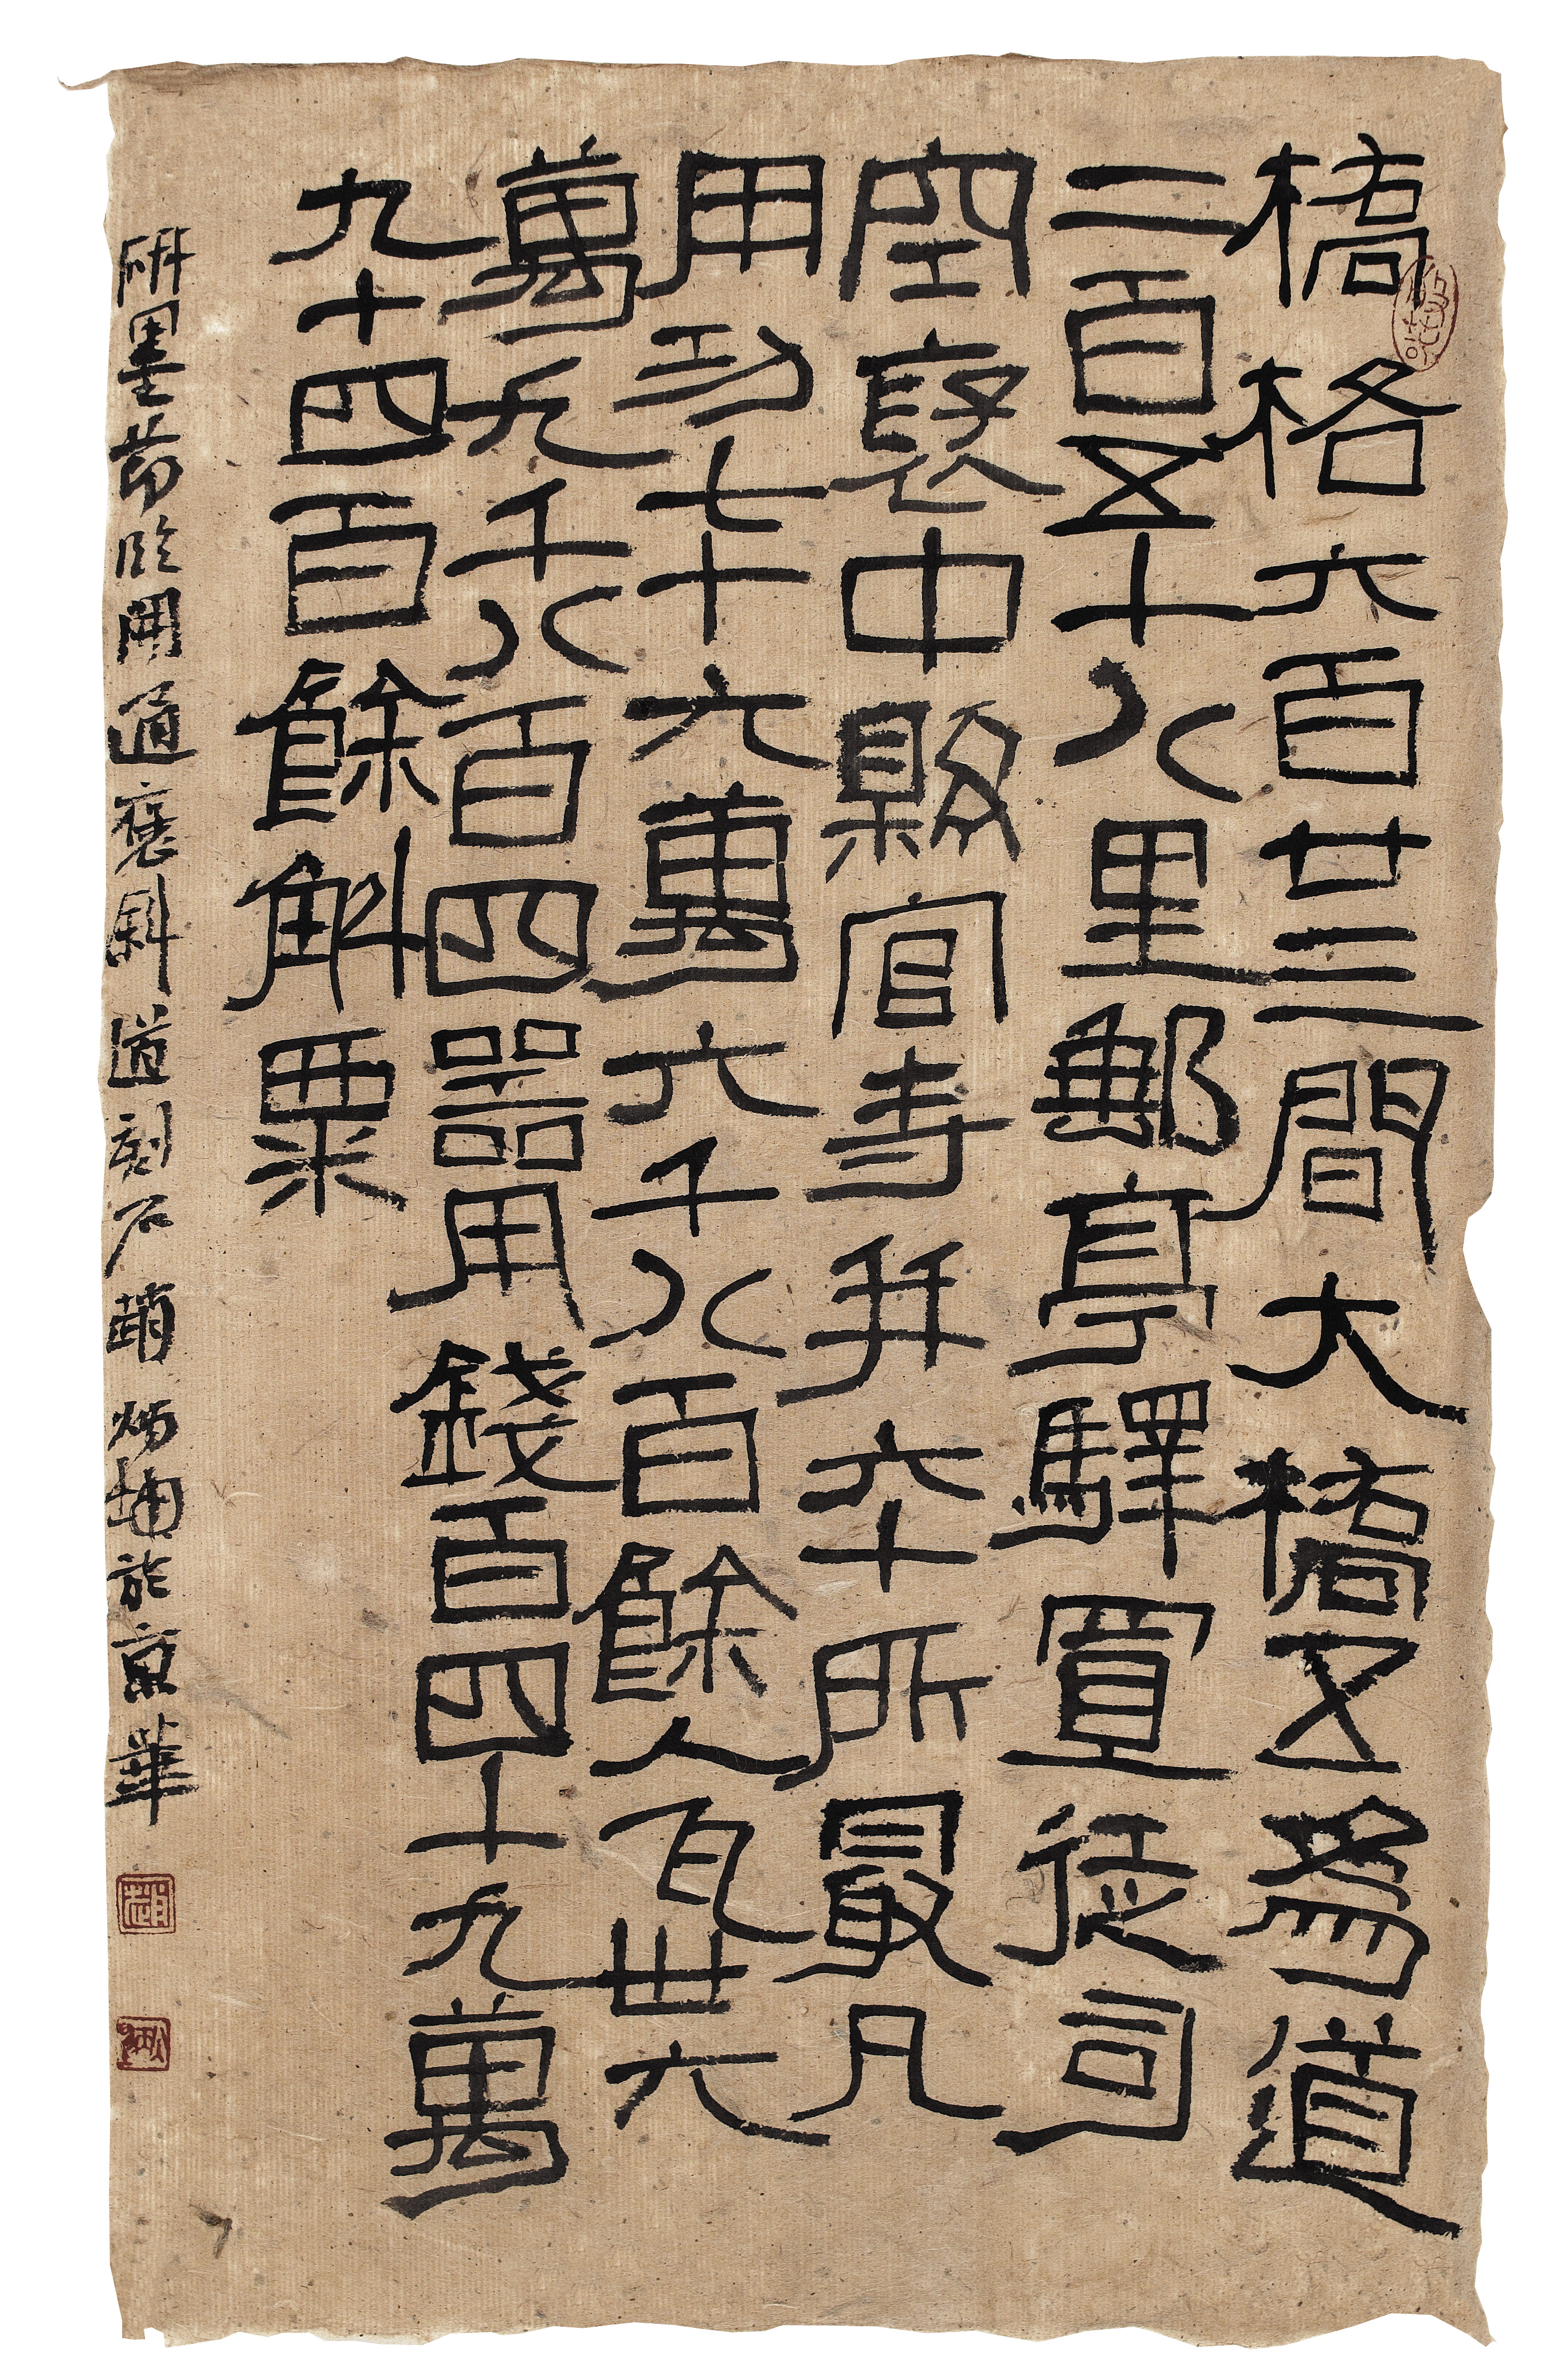 橋格六百廿三間大橋五為道
二百五十八里郵亭驛置徒司
空褒中縣官寺并六十所最凡
用功七十六萬六千八百餘人瓦卅六
萬九千八百四器用錢百四十九萬
九十四百餘斛粟
研墨節臨開通褒斜道刻石 於京華